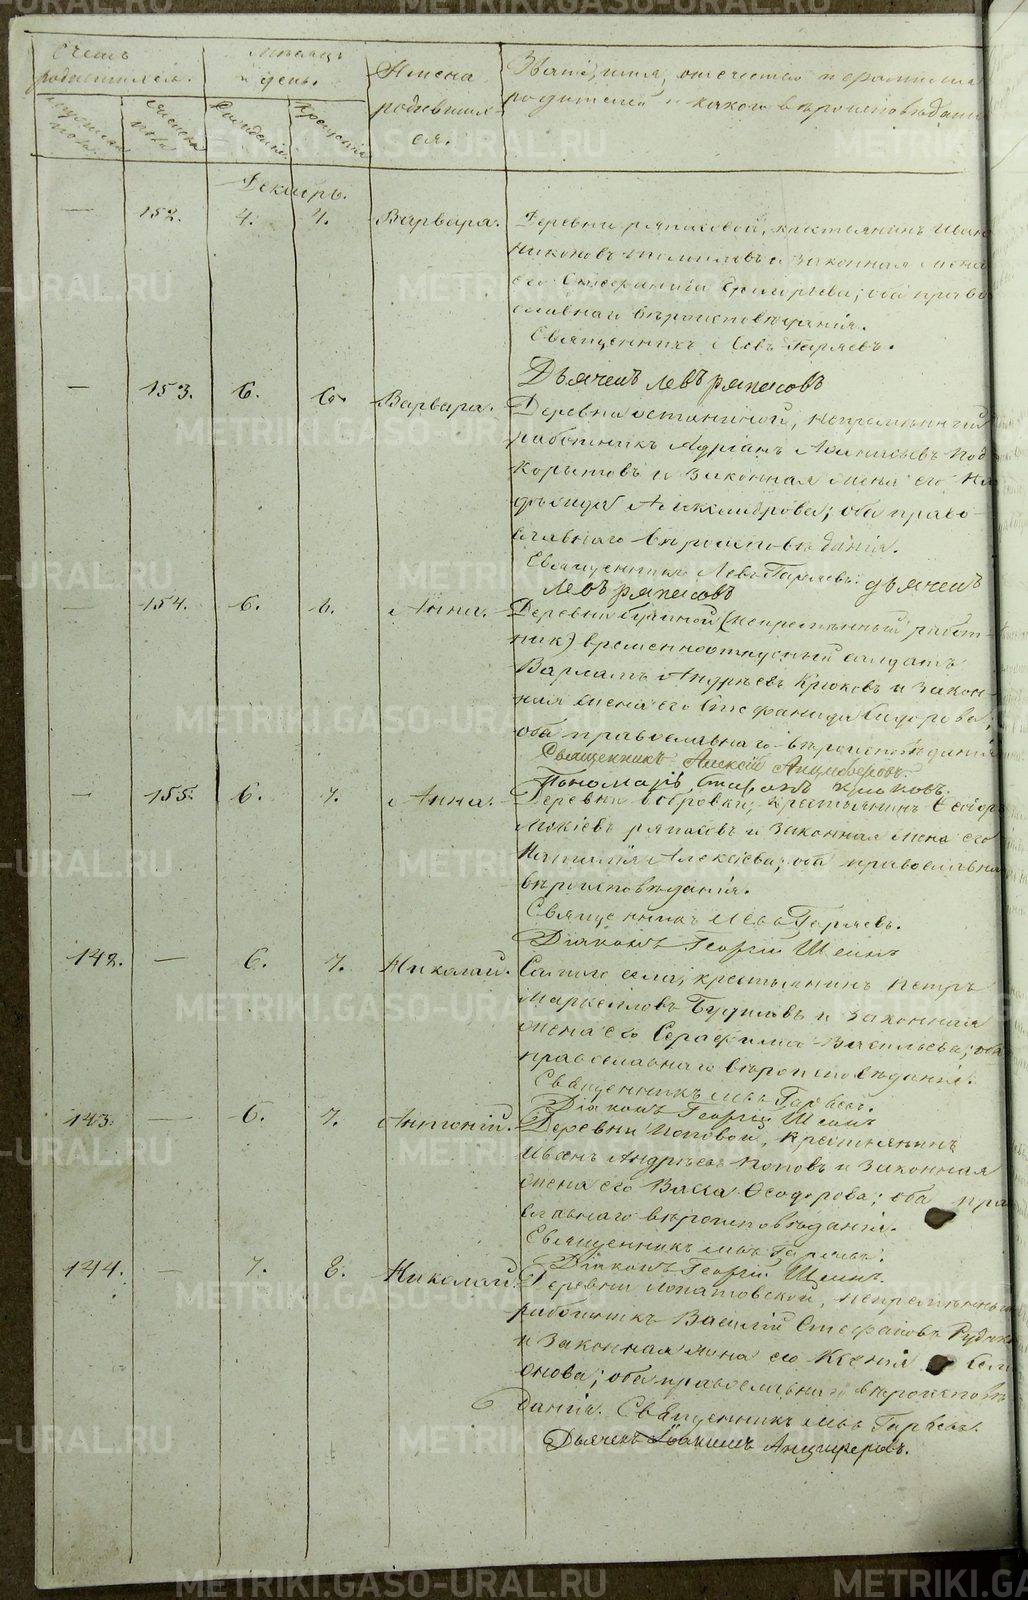 Счетъ родившихся.
Мѣсяцъ и день.
Имена родившихся.
Званіе, имя, отчество и фамилія
родителей и какого вѣроисповѣданія
мужескаго пола.
женска пола
Рожденія
Крещенія
Декабрь.
— 152. 4. 4. Варвара. Деревни ряпасовой, крестьянинъ Иван
Никоновъ и законная жена
его Стефанида Григорьева; оба право
славнаго вѣроисповѣданія.
Священникъ Левъ Гаряевъ.
Дьячекъ левъ ряпасовъ
— 153. 6. 6. Варвара. Деревни останиной, непремѣнный
работникъ Адріанъ Афанасьевъ Под
корытовъ и законная жена его На
дѣжда Александрова; оба право-
славнаго вѣроисповѣданія.
Священникъ Левъ Гаряевъ. дьячекъ
левъ ряпасовъ
— 154. 6. 6. Анна. Деревни (непремѣнный работ-
никъ) временноотпускный солдатъ
Варлам Андрѣевъ Крюковъ и закон-
ная жена его Стефанида Сидорова;
оба православнаго вѣроисповѣданія
Священникъ Алексій Анциферовъ.
Пономарь
— 155. 6. 7. Анна. Деревни островки, крестьянинъ Ѳеодор
Мокіевъ ряпасовъ и законная жена его
Наталія Алексѣева; оба православна
вѣроисповѣданія.
Священникъ Левъ Гаряевъ.
Діаконъ Георгій Шеинъ
142. — 6. 7. Николай. Самаго села, крестьянинъ Петръ
Маркелловъ и законная
жена его Серафима Васильева; оба
православнаго вѣроисповѣданія.
Священникъ Левъ Гаряевъ.
Діаконъ Георгій Шеинъ
143. — 6. 7. Антоній. Деревни Поповой, крестьянинъ
Иванъ Андрѣевъ Поповъ и законная
жена его Васса Ѳеодорова; оба пра
славнаго вѣроисповѣданія.
Священникъ Левъ Гаряевъ.
Діаконъ Георгій Шеинъ.
144. — 7. 8. Николай. Деревни лопатовской, непремѣнный
работникъ Василій Стефановъ
и законная жена его Ксенія
онова; оба православнаго вѣроисповѣ
данія. Священникъ Левъ Гаряевъ.
Дьячекъ Іоакимъ Анциферовъ.
METRIKI.GASO-URAL.RU